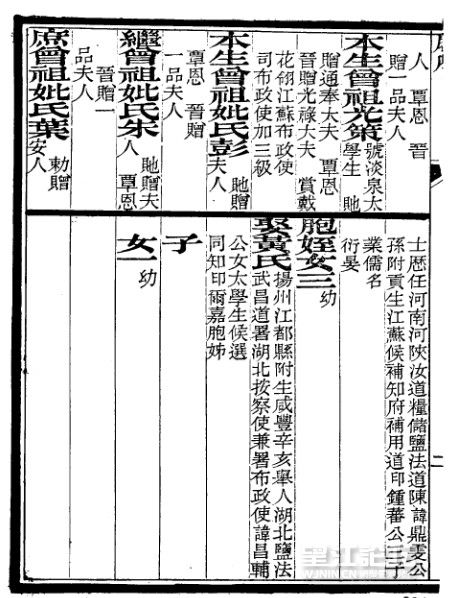 人 覃恩 晉
贈一品夫人
本生曾祖光策 號淡泉太
學生 貤
贈通奉大夫 覃恩
晉贈光祿大夫 賞戴
花翎江蘇布政使
司布政使加三級
本生曾祖妣氏彭 貤贈
夫人
覃恩 晉贈
一品夫人
繼曾祖妣氏朱 貤贈夫
人 覃恩
晉贈一
品夫人
庶曾祖妣氏葉 勅贈
安人
士歷任河南河陝汝道糧儲鹽法道陳諱鼎雯公
孫附貢生江蘇候補知府補用道印鍾蕃公子
業儒名
衍晏
胞姪女三 幼
娶黃氏 揚州江都縣附生咸豐辛亥舉人湖北鹽法
武昌道署湖北按察使兼署布政使諱昌輔
公女太學生候選
同知印爾嘉胞姊
子
女一 幼
二